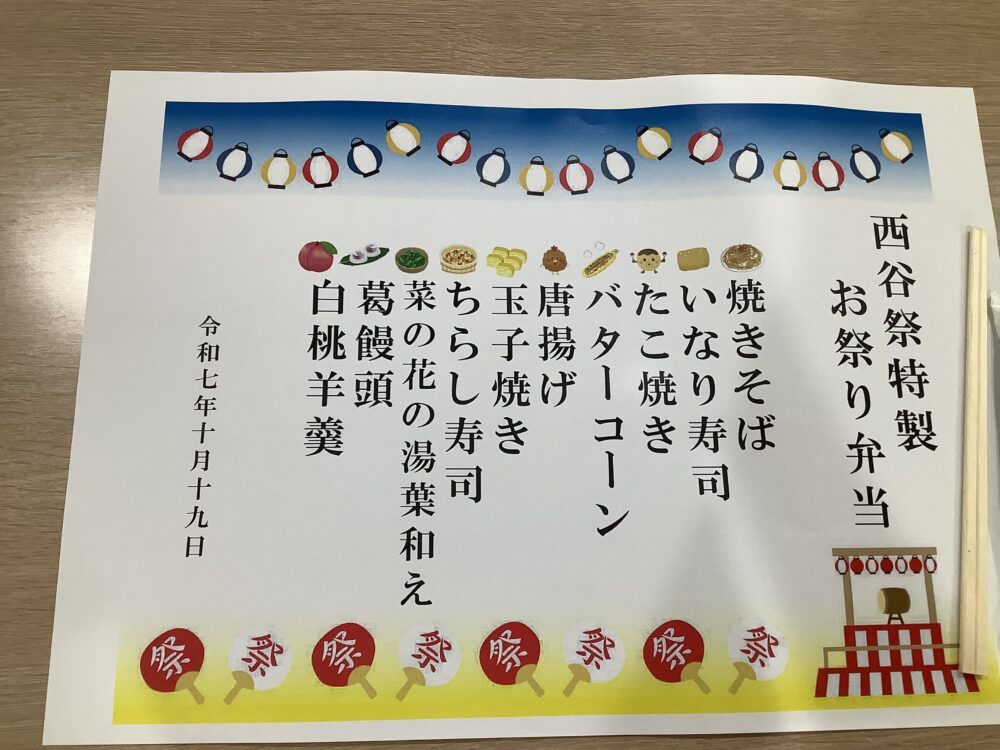 西谷祭特製
お祭り弁当
焼きそば
いなり寿司
たこ焼き
バターコーン
唐揚げ
玉子焼き
ちらし寿司
菜の花の湯葉和え
葛饅頭
白桃羊羹
令和七年十月十九日
祭
祭
祭
祭
祭
祭
祭
祭